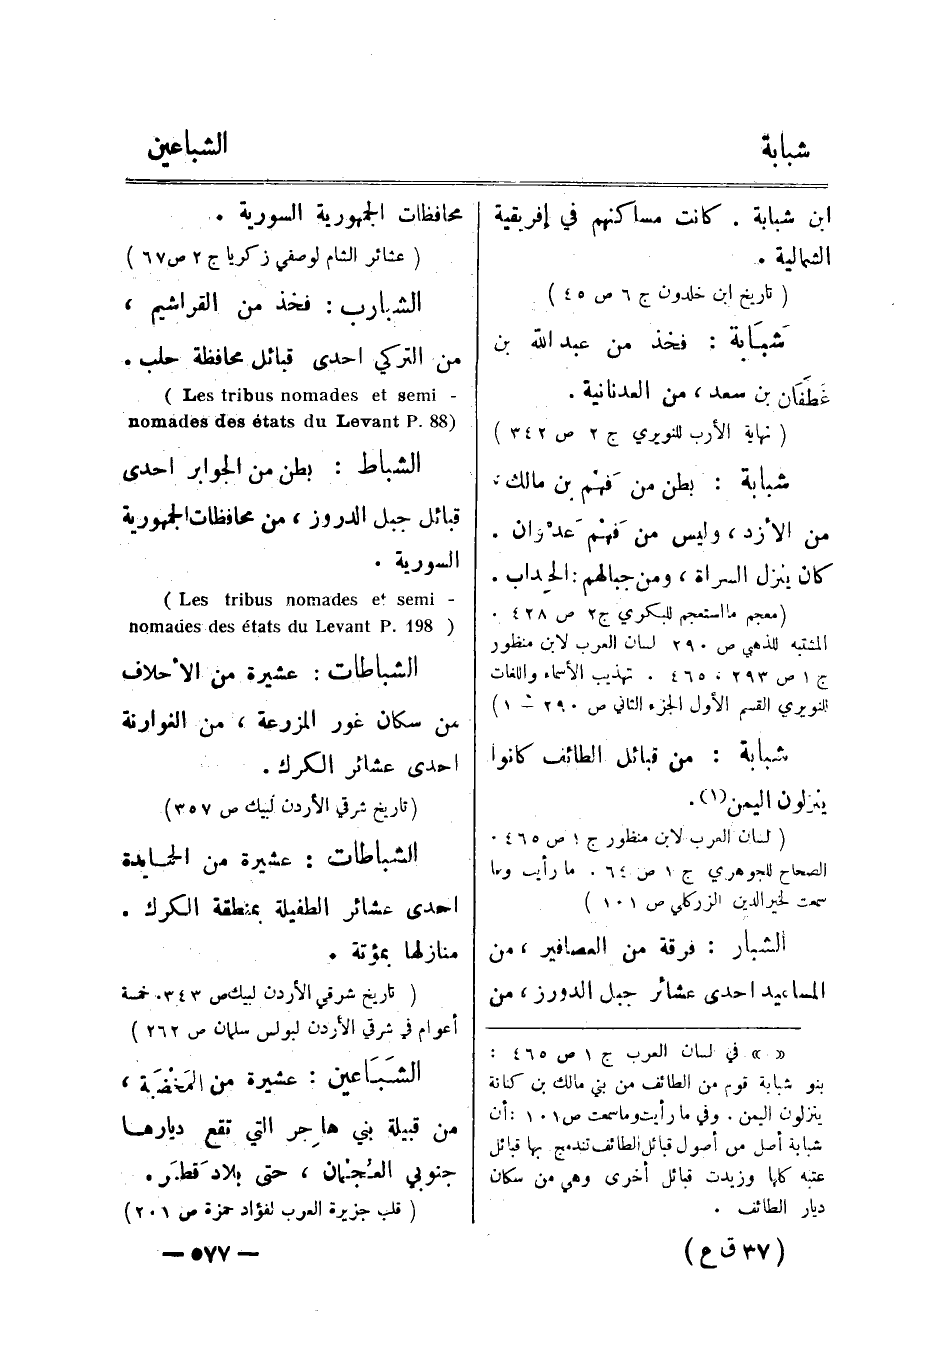 شبابة
الشباعين
ابن شبابة . كانت مساكنهم في إفريقية
الشمالية .
( تاريخ ابن خلدون ج ٦ ص ٤٥ )
شَبَابة : فخذ من عبد الله بن
غَطَفَان بن سعد ، من العدنانية .
( نهاية الأرب للنويري ج ٢ ص ٣٤٢ )
شبابة : بطن من فَهْم بن مالك ،
من الأزد ، وليس من فَهْم عَدْوان .
كان ينزل السراة ، ومن جبالهم : الحداب .
(معجم ما استعجم للبكري ج٢ ص ٤٢٨ .
المشتبه للذهبي ص ٢٩٠ لسان العرب لابن منظور
ج ١ ص ٢٩٣ ، ٤٦٥ . تهذيب الأسماء واللغات
للنويري القسم الأول الجزء الثاني ص ٢٩٠ – ١ )
شبابة : من قبائل الطائف كانوا
ينزلون اليمن(١).
( لسان العرب لابن منظور ج ١ ص ٤٦٥ .
الصحاح للجوهري ج ١ ص ٦٤ . ما رأيت وما
سمعت لخير الدين الزركلي ص ١٠١ )
الشبار : فرقة من العصافير ، من
المساعيد احدى عشائر جبل الدورز ، من
« » في لسان العرب ج ١ ص ٤٦٥ :
بنو شبابة قوم من الطائف من بني مالك بن كنانة
ينزلون اليمن . وفي ما رأيت وما سمعت ص ١٠١ : أن
شبابة أصل من أصول قبائل الطائف تندمج بها قبائل
عتبه كلها وزيدت قبائل أخرى وهي من سكان
ديار الطائف .
( ٣٧ ق ع )
محافظات الجمهورية السورية .
( عشائر الشام لوصفي زكريا ج ٢ ص ٦٧ )
الشبارب : فخذ من القراشيم ،
من التركي احدى قبائل محافظة حلب .
( Les tribus nomades et semi -
nomades des états du Levant P. 88)
الشباط : بطن من الجوابر احدى
قبائل جبل الدروز ، من محافظات الجمهورية
السورية .
( Les tribus nomades et semi -
nomades des états du Levant P. 198 )
الشباطات : عشيرة من الأحلاف
من سكان غور المزرعة ، من الغوارنة
احدى عشائر الكرك .
(تاريخ شرقي الأردن لبيك ص ٣٥٧)
الشباطات : عشيرة من الحمايدة
احدى عشائر الطفيلة بمنطقة الكرك .
منازلها بمؤتة .
( تاريخ شرقي الأردن لبيك ص ٣٤٣ . خمسة
أعوام في شرقي الأردن لبولس سلمان ص ٢٦٢ )
الشَبَاعين : عشيرة من المَخْضَبَة ،
من قبيلة بني هاجر التي تقع ديارها
جنوبي العُجْمَان ، حتى بلاد قَطَر .
( قلب جزيرة العرب لفؤاد حمزة ص ٢٠١ )
— ٥٧٧ —